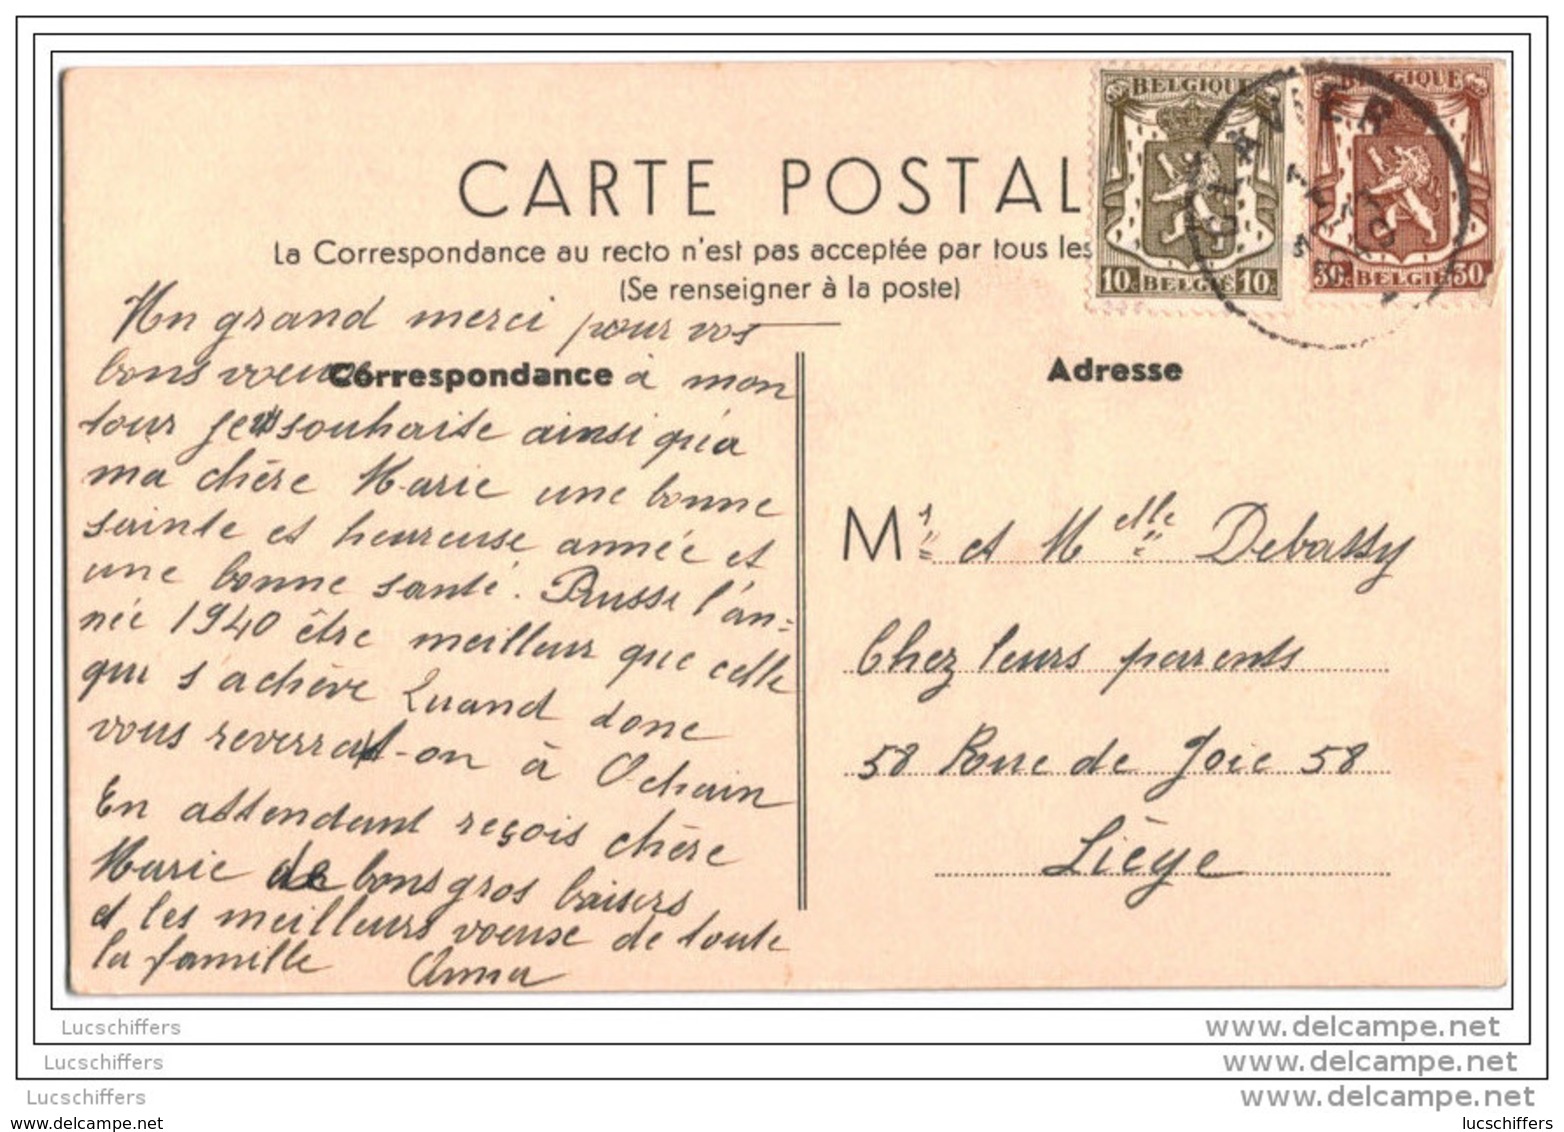 BELGIQUE
BELGIQUE
CLAVIER
CARTE POSTAL
La Correspondance au recto n'est pas acceptée par tous les
(Se renseigner à la poste)
10c BELGIË 10c
30c BELGIË 30
Un grand merci pour vos
bons voeux Correspondance à mon
tour je souhaite ainsi qu'a
ma chère Marie une bonne
sainte et heureuse année et
une bonne santé. Puisse l'an=
née 1940 être meilleur que celle
qui s'achève Quand donc
vous reverrat-on à Ochain
En attendant reçois chère
Marie de bons gros baisers
et les meilleurs voeuxe de toute
la famille Anna
Adresse
Mr et Melle Debatty
Chez leurs parents
58 Rue de Joie 58
Liège
Lucschiffers
www.delcampe.net
Lucschiffers
www.delcampe.net
Lucschiffers
www.delcampe.net
www.delcampe.net
lucschiffers